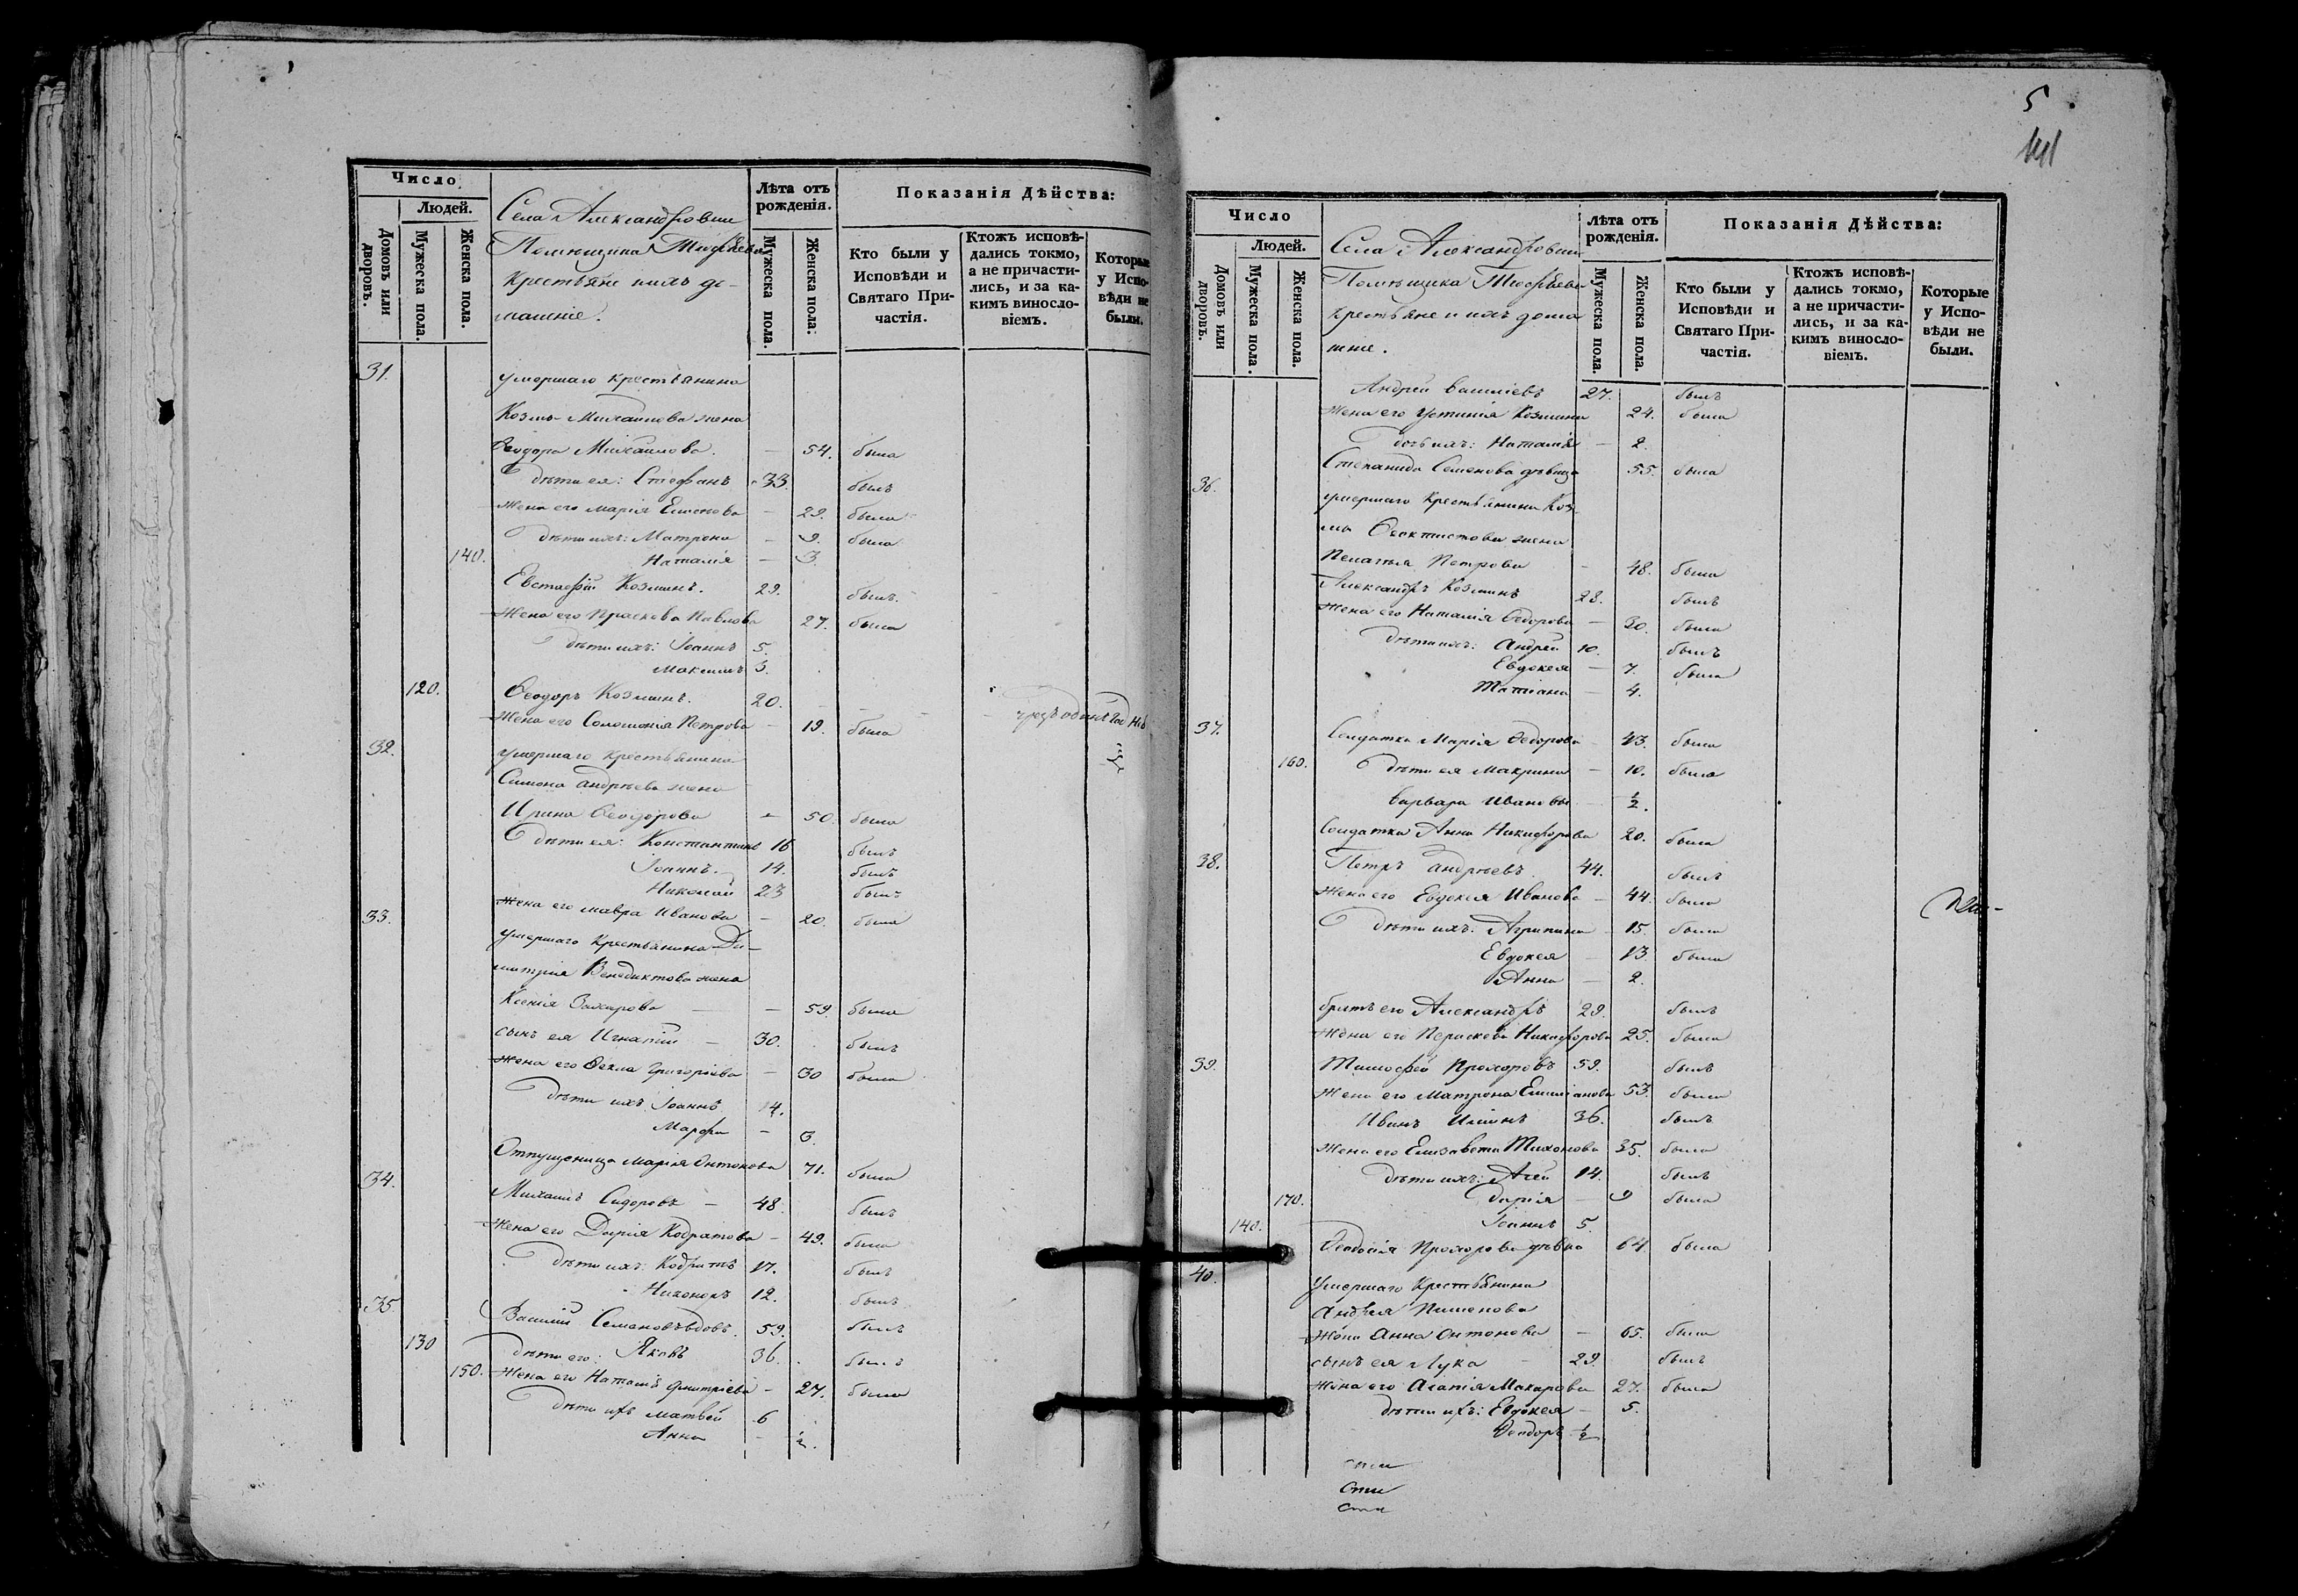 Число
Людей.
Домовъ или дворовъ.
Мужеска пола.
Женска пола.
Села Александровки
Помѣщика Тюфѣева
крестьяне и ихъ до-
машніе.
Лѣта отъ рожденія.
Мужеска пола.
Женска пола:
Показанія Дѣйства:
Кто были у Исповѣди и Святаго При-частія.
Ктожъ исповѣ-дались токмо, а не причасти-лись, и за ка-кимъ виносло-віемъ.
Которые у Испо-вѣди не были.
31.
умершаго крестьянина
Козмы Михайлова жена
Ѳеодора Михайлова. — 54. была
дѣти ея: Стефанъ 33. былъ
жена его Марія — 29. была
дѣти ихъ: Матрона — 9. была
140. Наталія — 3.
Евстафій Козминъ. 29. былъ.
жена его Праскова Павлова 27. была
дѣти ихъ: Іоаннъ 5.
Максимъ 3.
120. Ѳеодоръ Козминъ. 20.
жена его Соломонія Петрова — 19. была
32. умершаго крестьянина
Симона Андрѣева жена
Ирина Ѳеодорова — 50. была
дѣти ея: Константинъ 16 былъ
Іоаннъ. 14. былъ
Николай 23 былъ
жена его Мавра Иванова — 20. была
33. умершаго крестьянина Ди-
митрія Венедиктова жена
Ксенія Захарова — 59. была
сынъ ея Игнатій — 30. былъ
жена его Ѳекла Григоріева — 30 была
дѣти ихъ Іоаннъ 14.
Марфа — 3.
Отпущеница Марія Антонова 71. была
34. Михаилъ Сидоровъ — 48. былъ
жена его Дарія Кодратова — 49. была
дѣти ихъ: Кодратъ 17. былъ
Никоноръ 12. былъ
35. Василій Семеновъ вдовъ. 59. былъ
130 дѣти его: Яковъ 36. былъ
150. жена его Наталія Дмитріева — 27. была
дѣти ихъ Матвей 6
Анна — ½.
5
141
Число
Людей.
Домовъ или дворовъ.
Мужеска пола.
Женска пола.
Села Александровки
Помѣщика Тюфѣева
крестьяне и ихъ дома
шніе.
Лѣта отъ рожденія.
Мужеска пола.
Женска пола.
Показанія Дѣйства:
Кто были у Исповѣди и Святаго При-частія.
Ктожъ исповѣ-дались токмо, а не причасти-лись, и за ка-кимъ виносло-віемъ.
Которые у Испо-вѣди не были.
Андрей Василіевъ 27. былъ
жена его Устинія Козмина 24. была
дочь ихъ: Наталія — 2.
Степанида Семенова дѣвица 55. была
36. умершаго крестьянина Коз-
мы Ѳеоктистова жена
Пелагѣя Петрова — 48. была
Александръ Козминъ 28. былъ
жена его Наталія Ѳедорова — 30. была
дѣти ихъ: Андрей 10. былъ
Евдокея — 7. была
Татіана — 4.
37. Солдатка Марія Ѳедорова 43. была
160. дѣти ея Макрина — 10. была
Варвара Ивановы — ½.
Солдатка Анна Никифорова 20. была
38. Петръ Андрѣевъ. 44. былъ
жена его Евдокея Иванова — 44. была
дѣти ихъ: Агрипина — 15. была
Евдокея — 13. была
Анна — 2.
братъ его Александръ 29. былъ
жена его Пераскева Никифорова 25. была
39. Тимофей Прохоровъ 59. былъ
жена его Матрона Емиліанова 53. была
Иванъ 36. былъ
жена его Елизавета Тихонова 35. была
дѣти ихъ: Агей 14. былъ
170. Дарія — 9 была
140. Іоаннъ 5.
Ѳеодосія Прохорова дѣвка 64. была
40. умершаго крестьянина
Андрея Пименова
жена Анна Антонова — 65. была
сынъ ея Лука — 29. былъ
жена его Агапія Макарова 27. была
дѣти ихъ: Евдокея — 5.
Ѳеодоръ ½